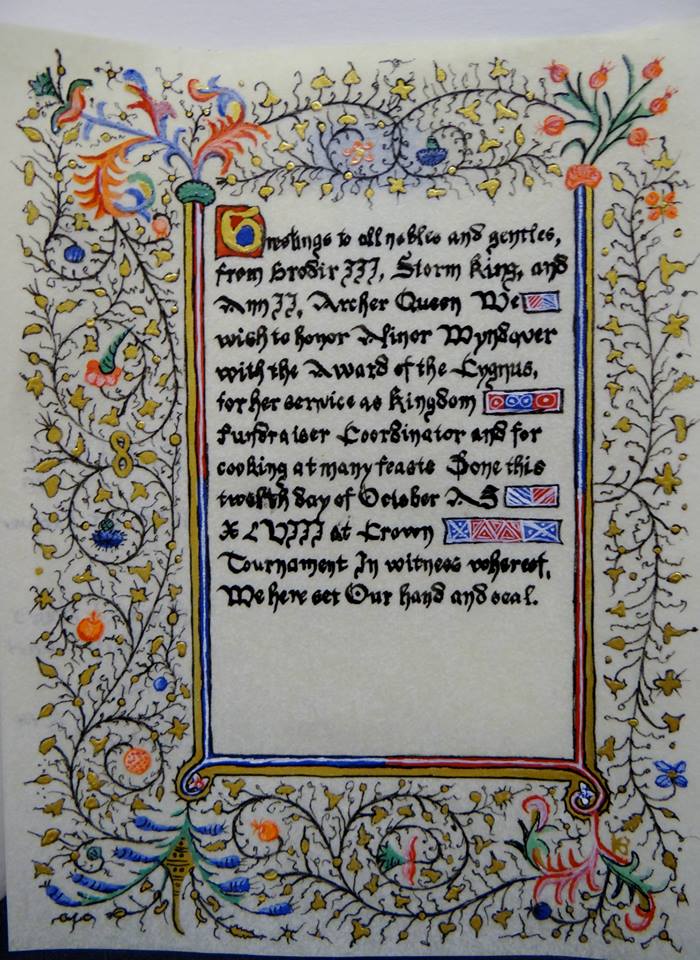 Greetings to all nobles and gentles,
from Brodir III, Storm King, and
Ann II, Archer Queen We
wish to honor Alinor Wyndsver
with the Award of the Cygnus,
for her service as Kingdom
Fundraiser Coordinator and for
cooking at many feasts Done this
twelfth day of October AS
XLVIII at Crown
Tournament In witness whereof,
We here set Our hand and seal.